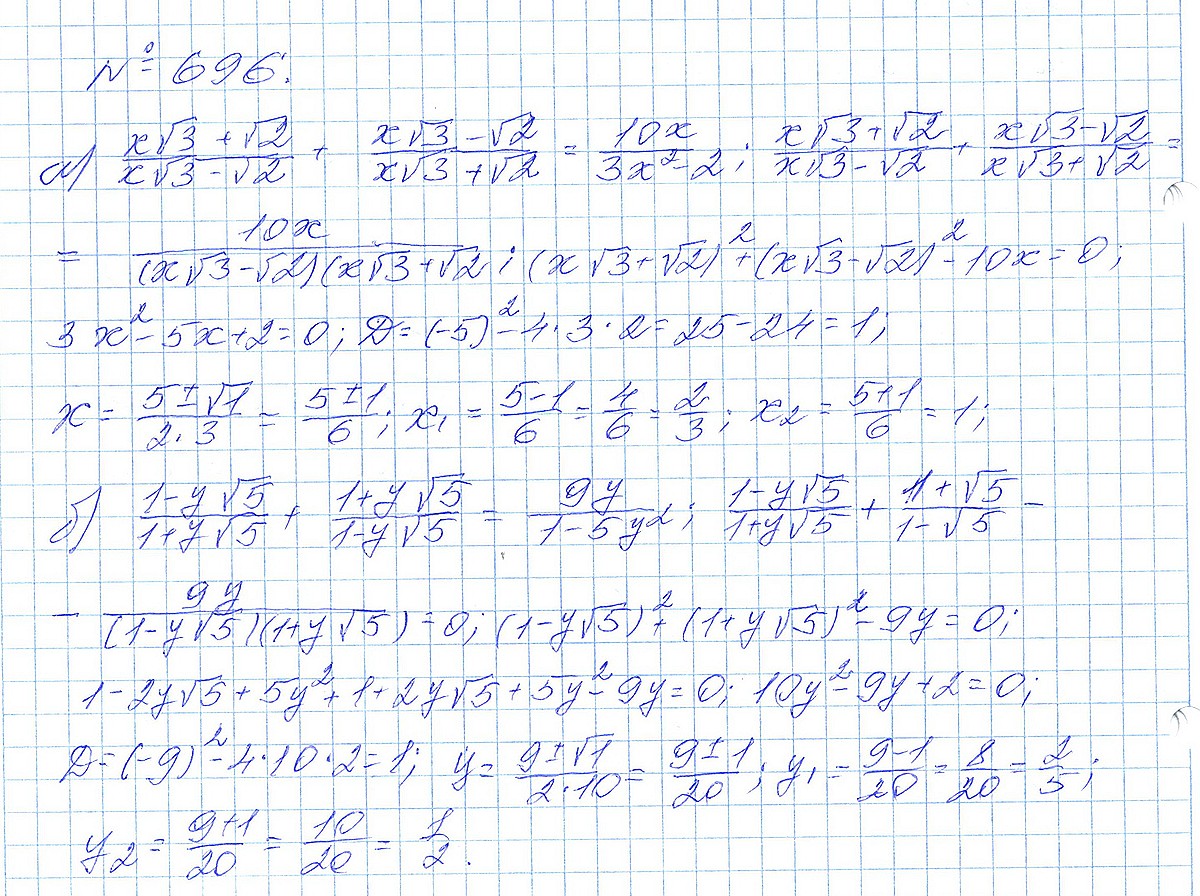 № 696.
а) (x√3+√2)/(x√3-√2) + (x√3-√2)/(x√3+√2) = 10x/(3x²-2); (x√3+√2)/(x√3-√2) + (x√3-√2)/(x√3+√2) =
= 10x/((x√3-√2)(x√3+√2; (x√3+√2)²+(x√3-√2)²-10x=0;
3x²-5x+2=0; D=(-5)²-4·3·2=25-24=1;
x = (5±√1)/(2·3) = (5±1)/6; x₁ = (5-1)/6 = 4/6 = 2/3; x₂ = (5+1)/6 = 1;
б) (1-y√5)/(1+y√5) + (1+y√5)/(1-y√5) = 9y/(1-5y²); (1-y√5)/(1+y√5) + (1+√5)/(1-√5) -
- 9y/((1-y√5)(1+y√5)) = 0; (1-y√5)²+(1+y√5)²-9y=0;
1-2y√5+5y²+1+2y√5+5y²-9y=0; 10y²-9y+2=0;
D=(-9)²-4·10·2=1; y = (9±√1)/(2·10) = (9±1)/20; y₁ = (9-1)/20 = 8/20 = 2/5;
y₂ = (9+1)/20 = 10/20 = 1/2.